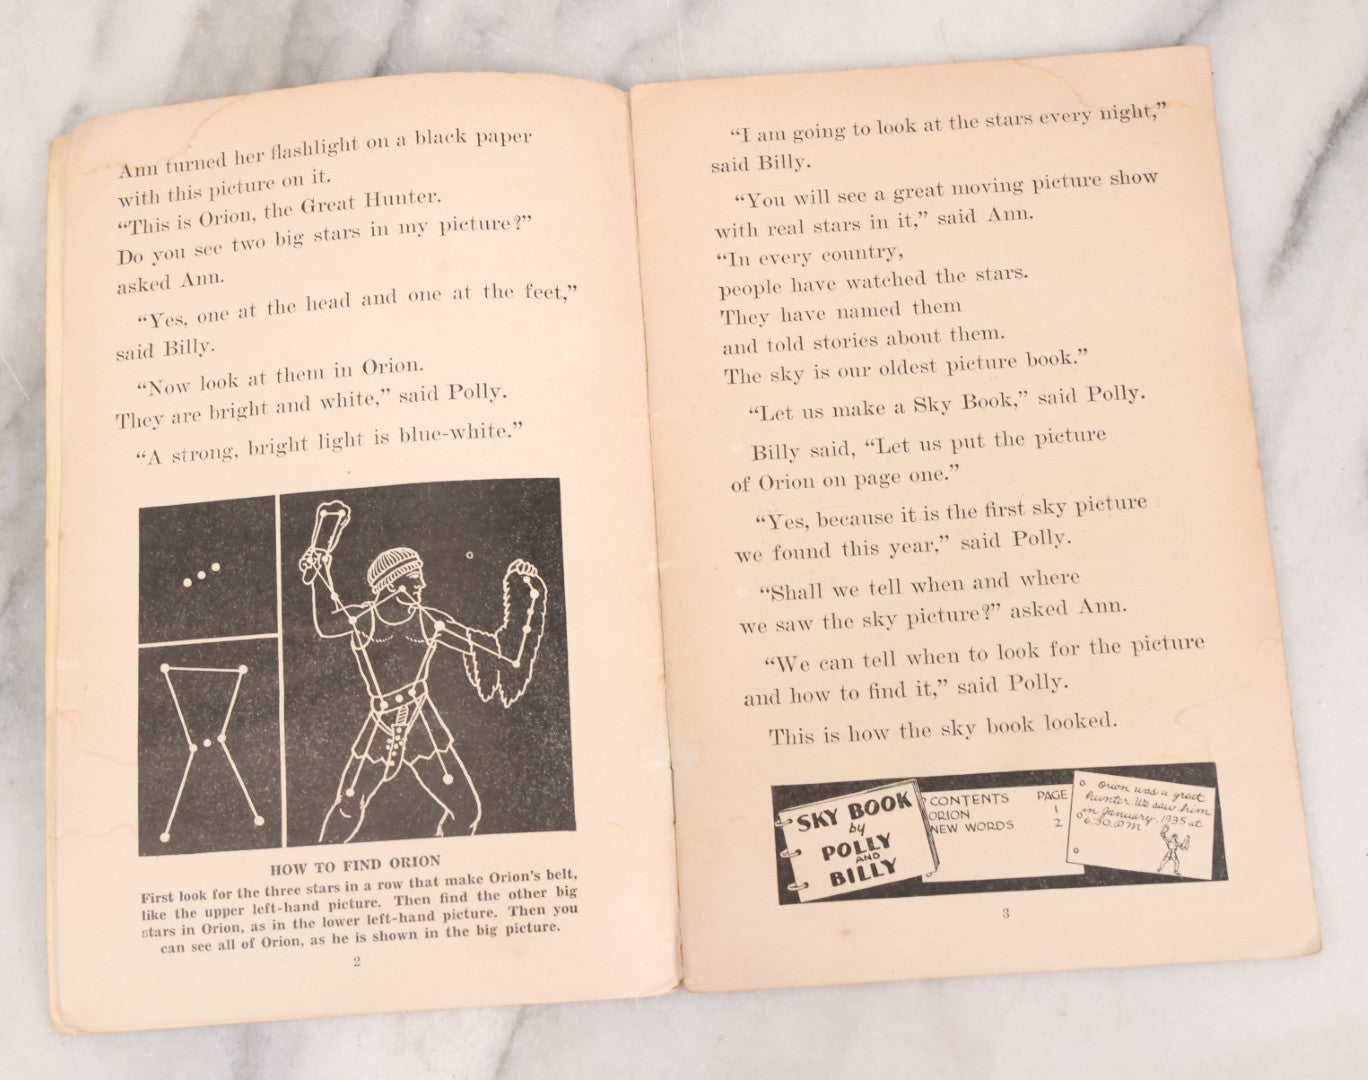 Ann turned her flashlight on a black paper
with this picture on it.
“This is Orion, the Great Hunter.
Do you see two big stars in my picture?”
asked Ann.
“Yes, one at the head and one at the feet,”
said Billy.
“Now look at them in Orion.
They are bright and white,” said Polly.
“A strong, bright light is blue-white.”
HOW TO FIND ORION
First look for the three stars in a row that make Orion's belt,
like the upper left-hand picture. Then find the other big
stars in Orion, as in the lower left-hand picture. Then you
can see all of Orion, as he is shown in the big picture.
2
“I am going to look at the stars every night,”
said Billy.
“You will see a great moving picture show
with real stars in it,” said Ann.
“In every country,
people have watched the stars.
They have named them
and told stories about them.
The sky is our oldest picture book.”
“Let us make a Sky Book,” said Polly.
Billy said, “Let us put the picture
of Orion on page one.”
“Yes, because it is the first sky picture
we found this year,” said Polly.
“Shall we tell when and where
we saw the sky picture?” asked Ann.
“We can tell when to look for the picture
and how to find it,” said Polly.
This is how the sky book looked.
SKY BOOK
by
POLLY
AND
BILLY
CONTENTS PAGE
ORION 1
NEW WORDS 2
Orion was a great
hunter. We saw him
in January, 1935 at
6:30 P.M.
3